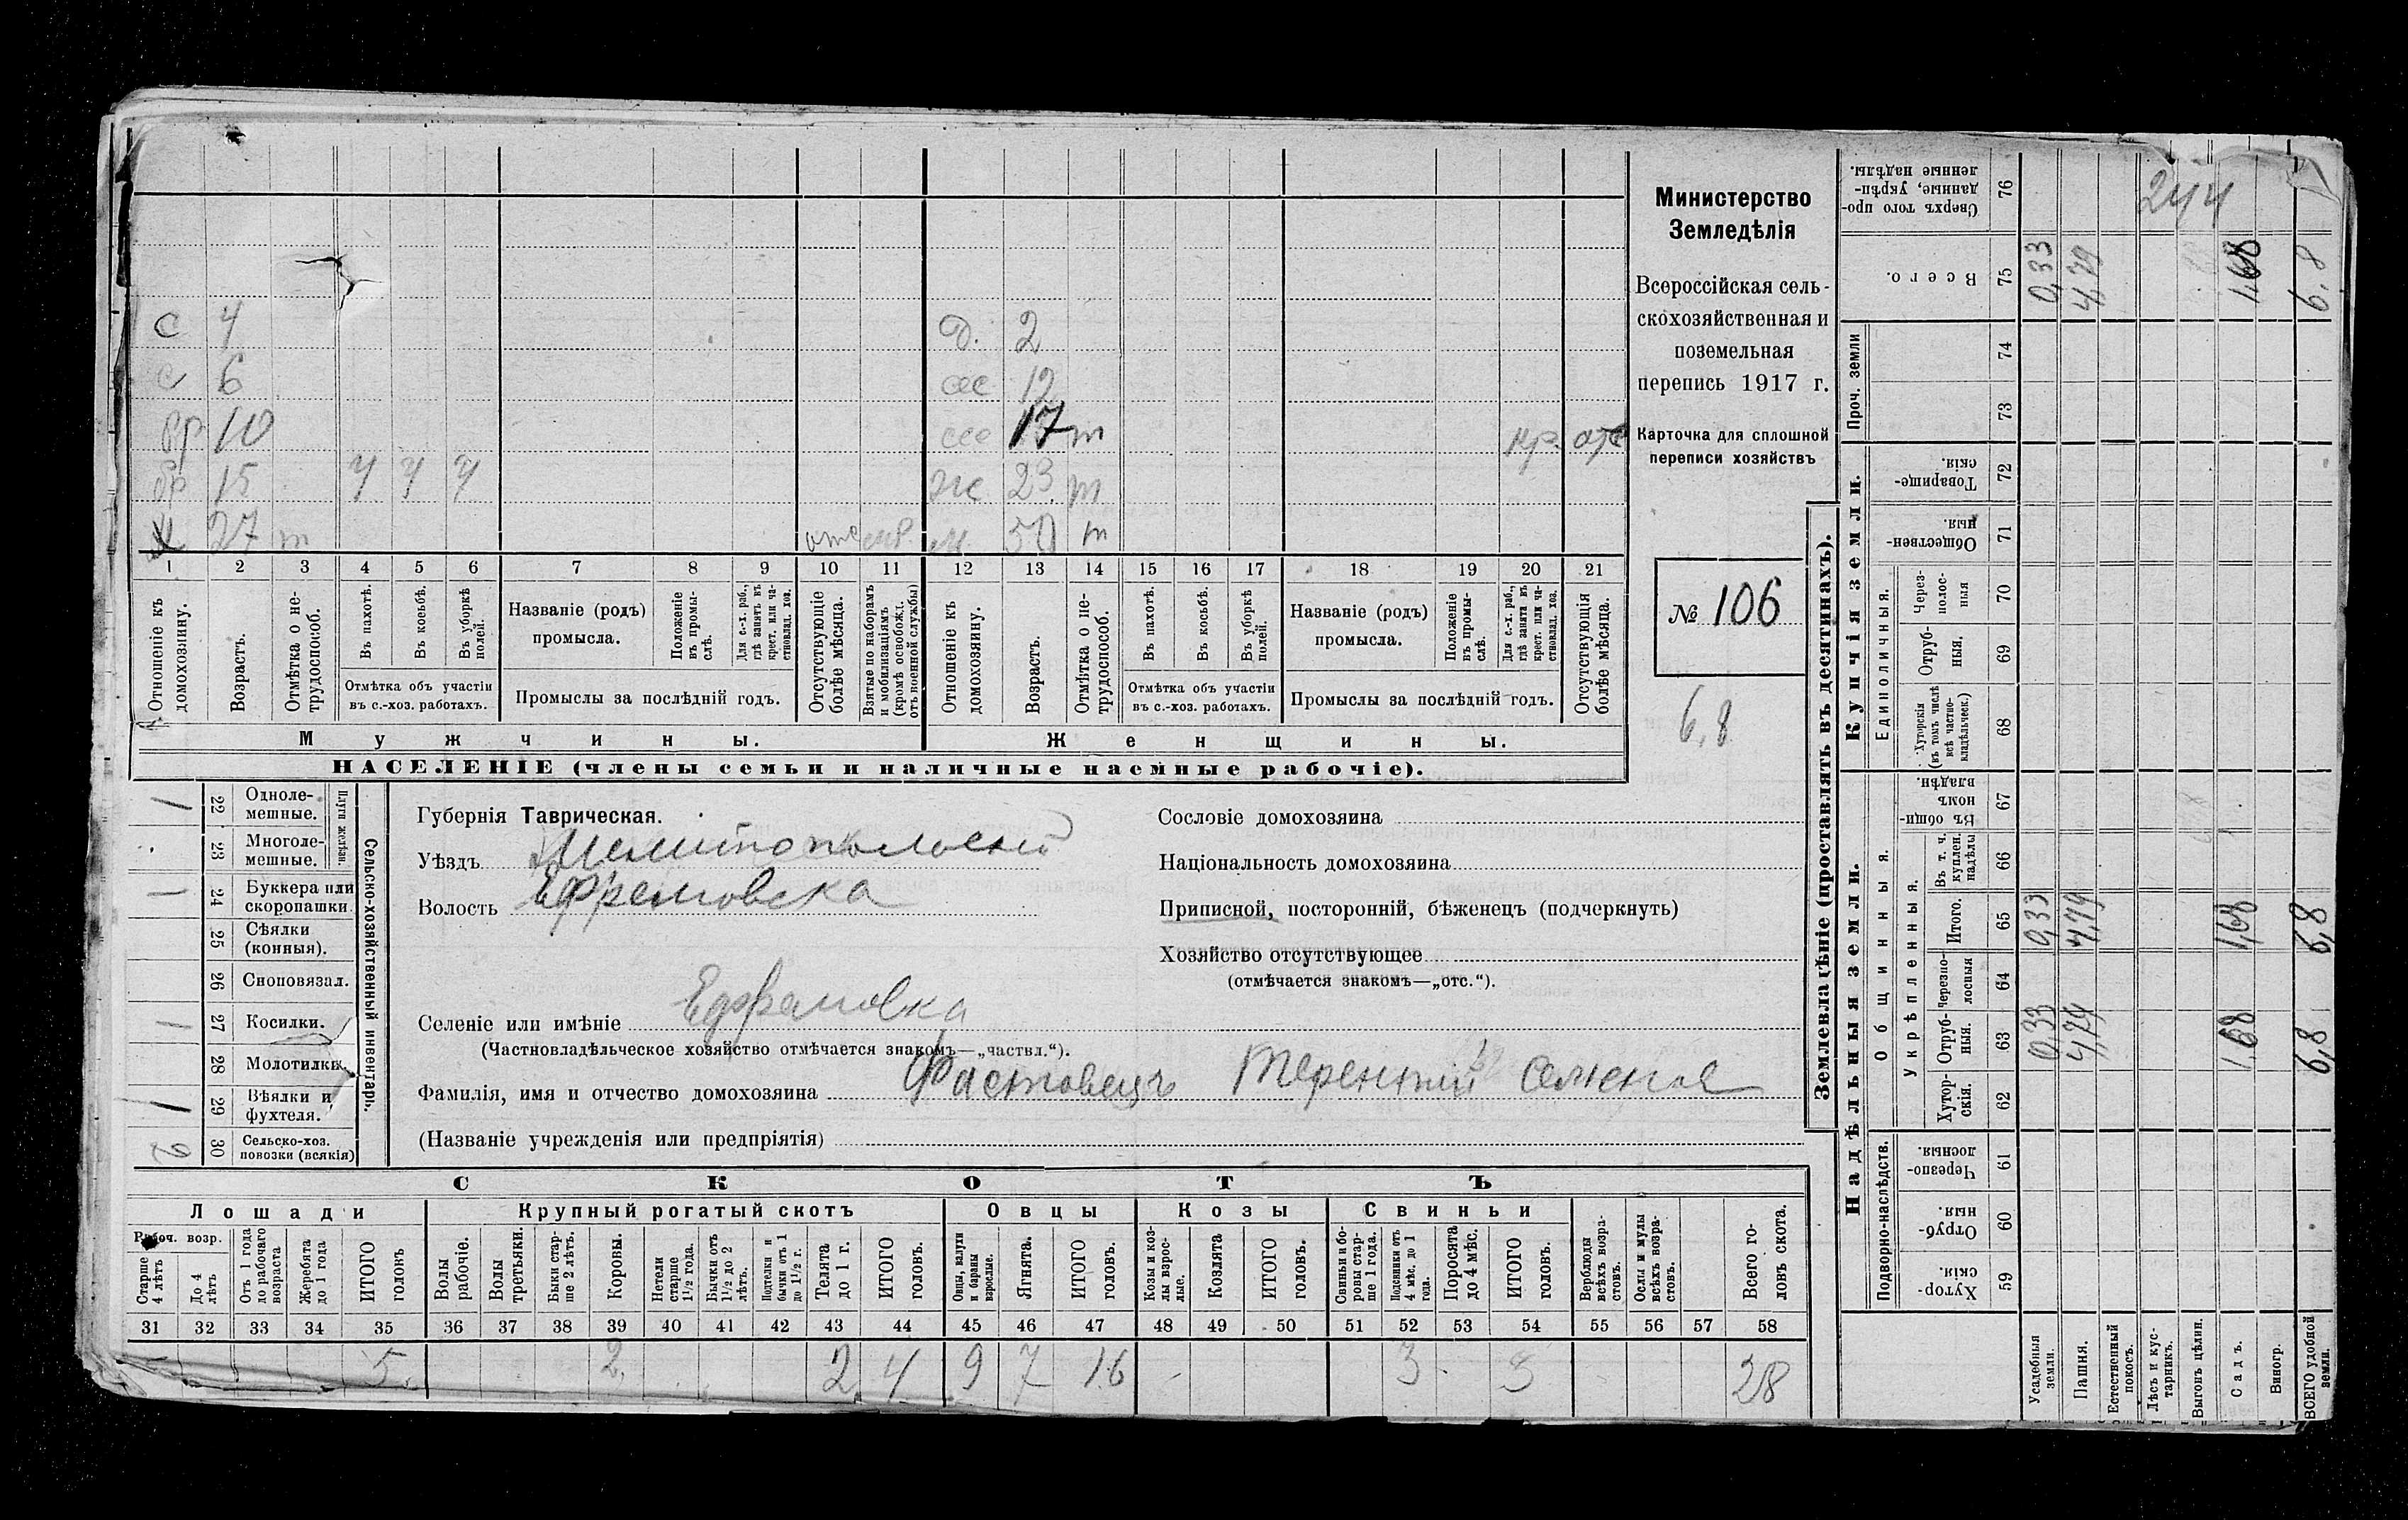 Министерство
Земледѣлія
Всероссійская сель-
скохозяйственная и
поземельная
перепись 1917 г.
Карточка для сплошной
переписи хозяйствъ
№ 106
6,8
с 4
с 6
бр 10
бр 15 ч ч ч
х 27 т отс
Д. 2
сес 12
сес 17 т отс
же 23 т
м. 50 т
1 2 3 4 5 6 7 8 9 10 11 12 13 14 15 16 17 18 19 20 21
Отношеніе къ домохозяину.
Возрастъ.
Отмѣтка о не-трудоспособ.
Въ пахотѣ.
Въ косьбѣ.
Въ уборкѣ полей.
Отмѣтка объ участіи
въ с.-хоз. работахъ.
Названіе (родъ)
промысла.
Положеніе въ промы-слѣ.
Для с.-х. раб., гдѣ занятъ въ крест. или ча-стновлад. хоз.
Промыслы за послѣдній годъ.
Отсутствующіе болѣе мѣсяца.
Взятые по наборамъ и мобилизаціямъ (кромѣ освобожд. отъ военной службы)
Отношеніе къ домохозяину.
Возрастъ.
Отмѣтка о не-трудоспособ.
Въ пахотѣ.
Въ косьбѣ.
Въ уборкѣ полей.
Отмѣтка объ участіи
въ с.-хоз. работахъ.
Названіе (родъ)
промысла.
Положеніе въ промы-слѣ.
Для с.-х. раб., гдѣ занята въ крест. или ча-стновлад. хоз.
Промыслы за послѣдній годъ.
Отсутствующія болѣе мѣсяца.
Мужчины.
Женщины.
НАСЕЛЕНІЕ (члены семьи и наличные наемные рабочіе).
Сельско-хозяйственный инвентарь.
Плуги желѣзн.
1 22 Одноле-мешные.
23 Многоле-мешные.
1 24 Буккера или скоропашки
25 Сѣялки (конныя).
26 Сноповязал.
1 27 Косилки.
28 Молотилки.
1 29 Вѣялки и фухтеля.
2 30 Сельско-хоз. повозки (всякія)
Губернія Таврическая.
Уѣздъ Мелитопольскій
Волость Ефремовска
Селеніе или имѣніе Ефремовка
(Частновладѣльческое хозяйство отмѣчается знакомъ—„частвл.“).
Фамилія, имя и отчество домохозяина Фастовецъ Терентий Семенов
(Названіе учрежденія или предпріятія)
Сословіе домохозяина
Національность домохозяина
Приписной, посторонній, бѣженецъ (подчеркнуть)
Хозяйство отсутствующее
(отмѣчается знакомъ—„отс.“).
СКОТЪ
Лошади
Крупный рогатый скотъ
Овцы
Козы
Свиньи
Рабоч. возр.
Старше 4 лѣтъ
До 4 лѣтъ
Отъ 1 года до рабочаго возраста
Жеребята до 1 года
ИТОГО головъ
Волы рабочіе.
Волы третьяки.
Быки стар-ше 2 лѣтъ.
Коровы.
Нетели старше 1½ года.
Бычки отъ 1½ до 2 лѣтъ.
Подтелки и бычки отъ 1 до 1½ г.
Телята до 1 г.
ИТОГО головъ.
Овцы, валухи и бараны взрослые.
Ягнята.
ИТОГО головъ.
Козы и коз-лы взрос-лые.
Козлята
ИТОГО головъ.
Свиньи и бо-ровы стар-ше 1 года.
Подсвинки отъ 4 мѣс. до 1 года.
Поросята до 4 мѣс.
ИТОГО головъ.
Верблюды всѣхъ возра-стовъ.
Ослы и мулы всѣхъ возра-стовъ.
Всего го-ловъ скота.
31 32 33 34 35 36 37 38 39 40 41 42 43 44 45 46 47 48 49 50 51 52 53 54 55 56 57 58
5. 2. 2 4 9 7 16 3 3 28
Землевладѣніе (проставлять въ десятинахъ).
Надѣльныя земли.
Купчія земли.
Проч. земли
Подворно-наслѣдств.
Общинныя.
Укрѣпленныя.
Единоличныя.
Хутор-скія. 59
Отруб-ныя. 60
Черезпо-лосныя. 61
Хутор-скія. 62
Отруб-ныя. 63
Черезпо-лосныя 64
Итого. 65
Въ т. ч. куплен. надѣлы 66
Въ общин-номъ владѣн. 67
Хуторскія (въ томъ числѣ всѣ частно-владѣльческ.) 68
Отруб-ныя. 69
Через-полос-ныя 70
Обществен-ныя. 71
Товарище-скія. 72
73
74
Всего. 75
Сверхъ того про-данные, укрѣп-ленные надѣлы. 76
Усадебныя земли.
Пашня.
Естественный покосъ.
Лѣсъ и кус-тарникъ.
Выгонъ цѣлин.
Садъ.
Виногр.
ВСЕГО удобной земли.
0,33 4,79 1,68 6,8
0,33 4,79 1,68 6,8
0,33 4,79 1,68 6,8
244